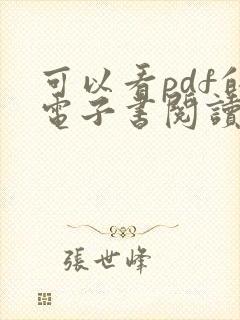 可以看pdf的
電子書閱讀
張世峰